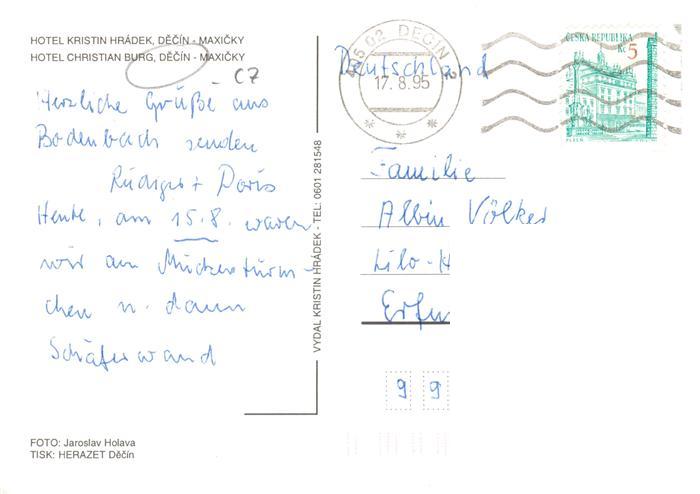 HOTEL KRISTIN HRÁDEK, DĚČÍN - MAXIČKY
HOTEL CHRISTIAN BURG, DĚČÍN - MAXIČKY
- CZ
Herzliche Grüße aus
Bodenbach senden
Rüdiger + Doris
Heute, am 15.8. waren
wir am Mückentürm-
chen u. dann
Schäferwand
FOTO: Jaroslav Holava
TISK: HERAZET Děčín
VYDAL KRISTIN HRÁDEK - TEL: 0601 281548
Deutschland
05 02 DĚČÍN 2
17.8.95
ČESKÁ REPUBLIKA
Kč 5
PLZEŇ
Familie
Albin Völker
Lilo-H
Erfu
99